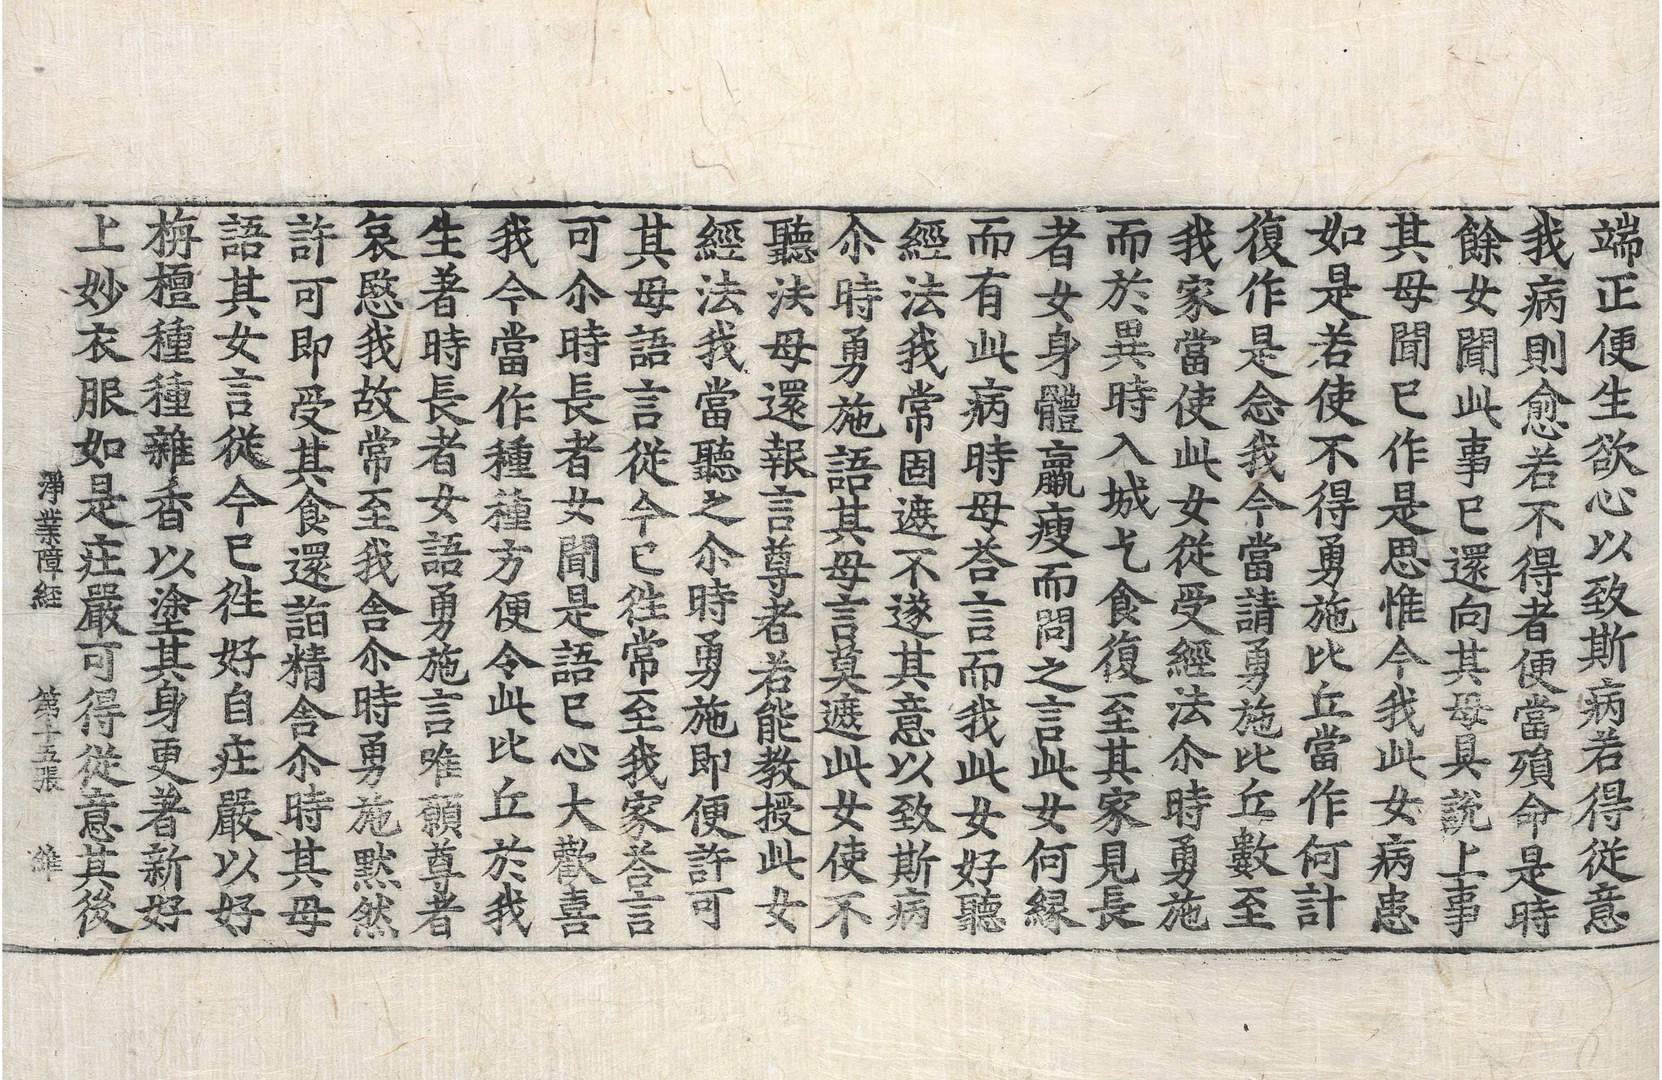 端正便生欲心以致斯病若得從意
我病則愈若不得者便當殞命是時
餘女聞此事已還向其母具說上事
其母聞已作是思惟今我此女病患
如是若使不得勇施比丘當作何計
復作是念我今當請勇施比丘數至
我家當使此女從受經法尒時勇施
而於異時入城乞食復至其家見長
者女身體羸瘦而問之言此女何緣
而有此病時母荅言而我此女好聽
經法我常固遮不遂其意以致斯病
尒時勇施語其母言莫遮此女使不
聽法母還報言尊者若能教授此女
經法我當聽之尒時勇施即便許可
其母語言從今已往常至我家荅言
可尒時長者女聞是語已心大歡喜
我今當作種種方便令此比丘於我
生著時長者女語勇施言唯願尊者
哀愍我故常至我舍尒時勇施默然
許可即受其食還詣精舍尒時其母
語其女言從今已往好自庄嚴以好
栴檀種種雜香以塗其身更著新好
上妙衣服如是庄嚴可得從意其後
淨業障經 第十五張 維